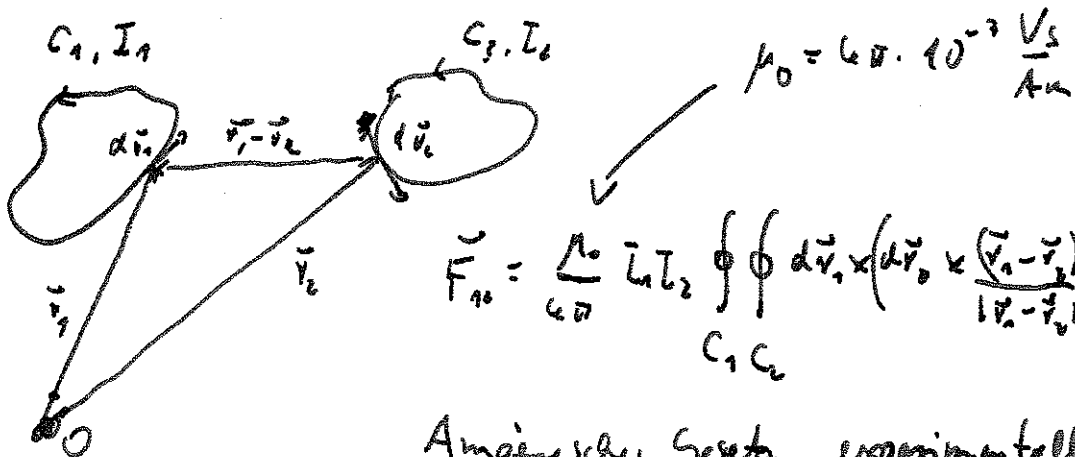 C₁, I₁
C₂, I₂
μ₀ = 4π · 10⁻⁷ Vs/Am
d\vec{r}₁
\vec{r}₁ - \vec{r}₂
d\vec{r}₂
\vec{r}₁
\vec{r}₂
\vec{F}₁₂ = μ₀/4π I₁ I₂ ∮ ∮ d\vec{r}₁ × (d\vec{r}₂ × (\vec{r}₁ - \vec{r}₂)/|\vec{r}₁ - \vec{r}₂|
C₁ C₂
O
Ampèresches Gesetz experimentell